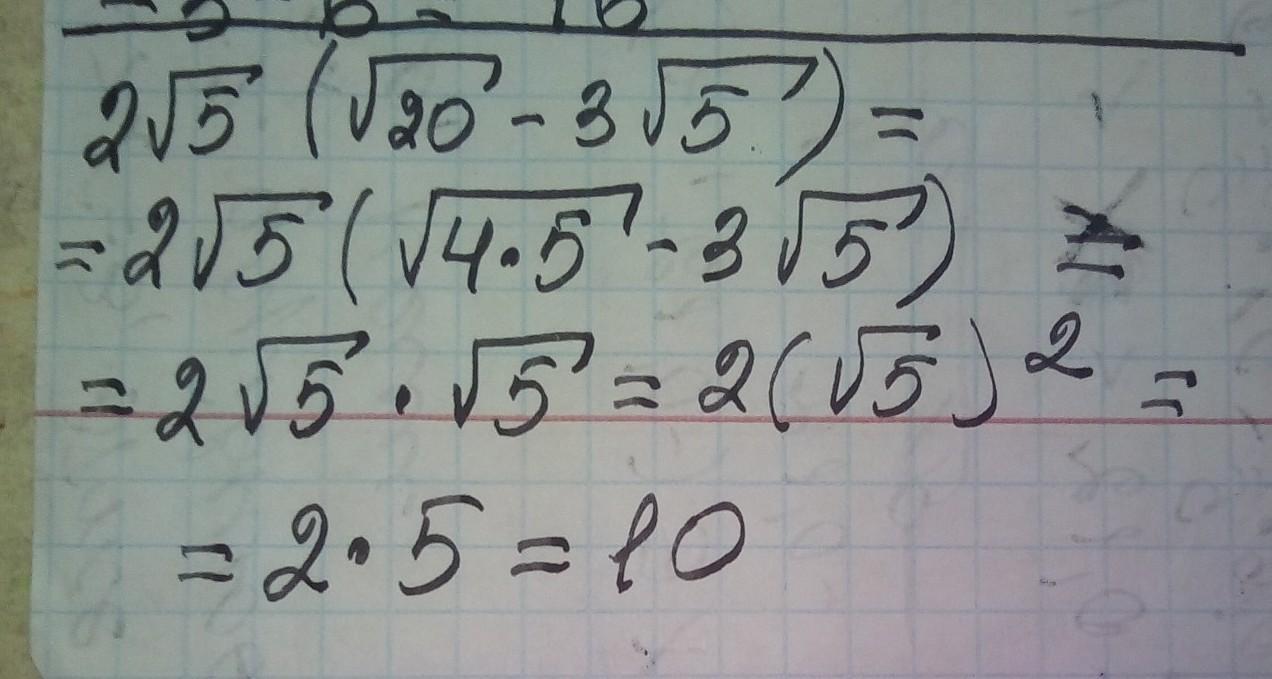 2√5 (√20 - 3√5) =
= 2√5 (√4·5 - 3√5) =
= 2√5 · √5 = 2(√5)² =
= 2·5 = 10